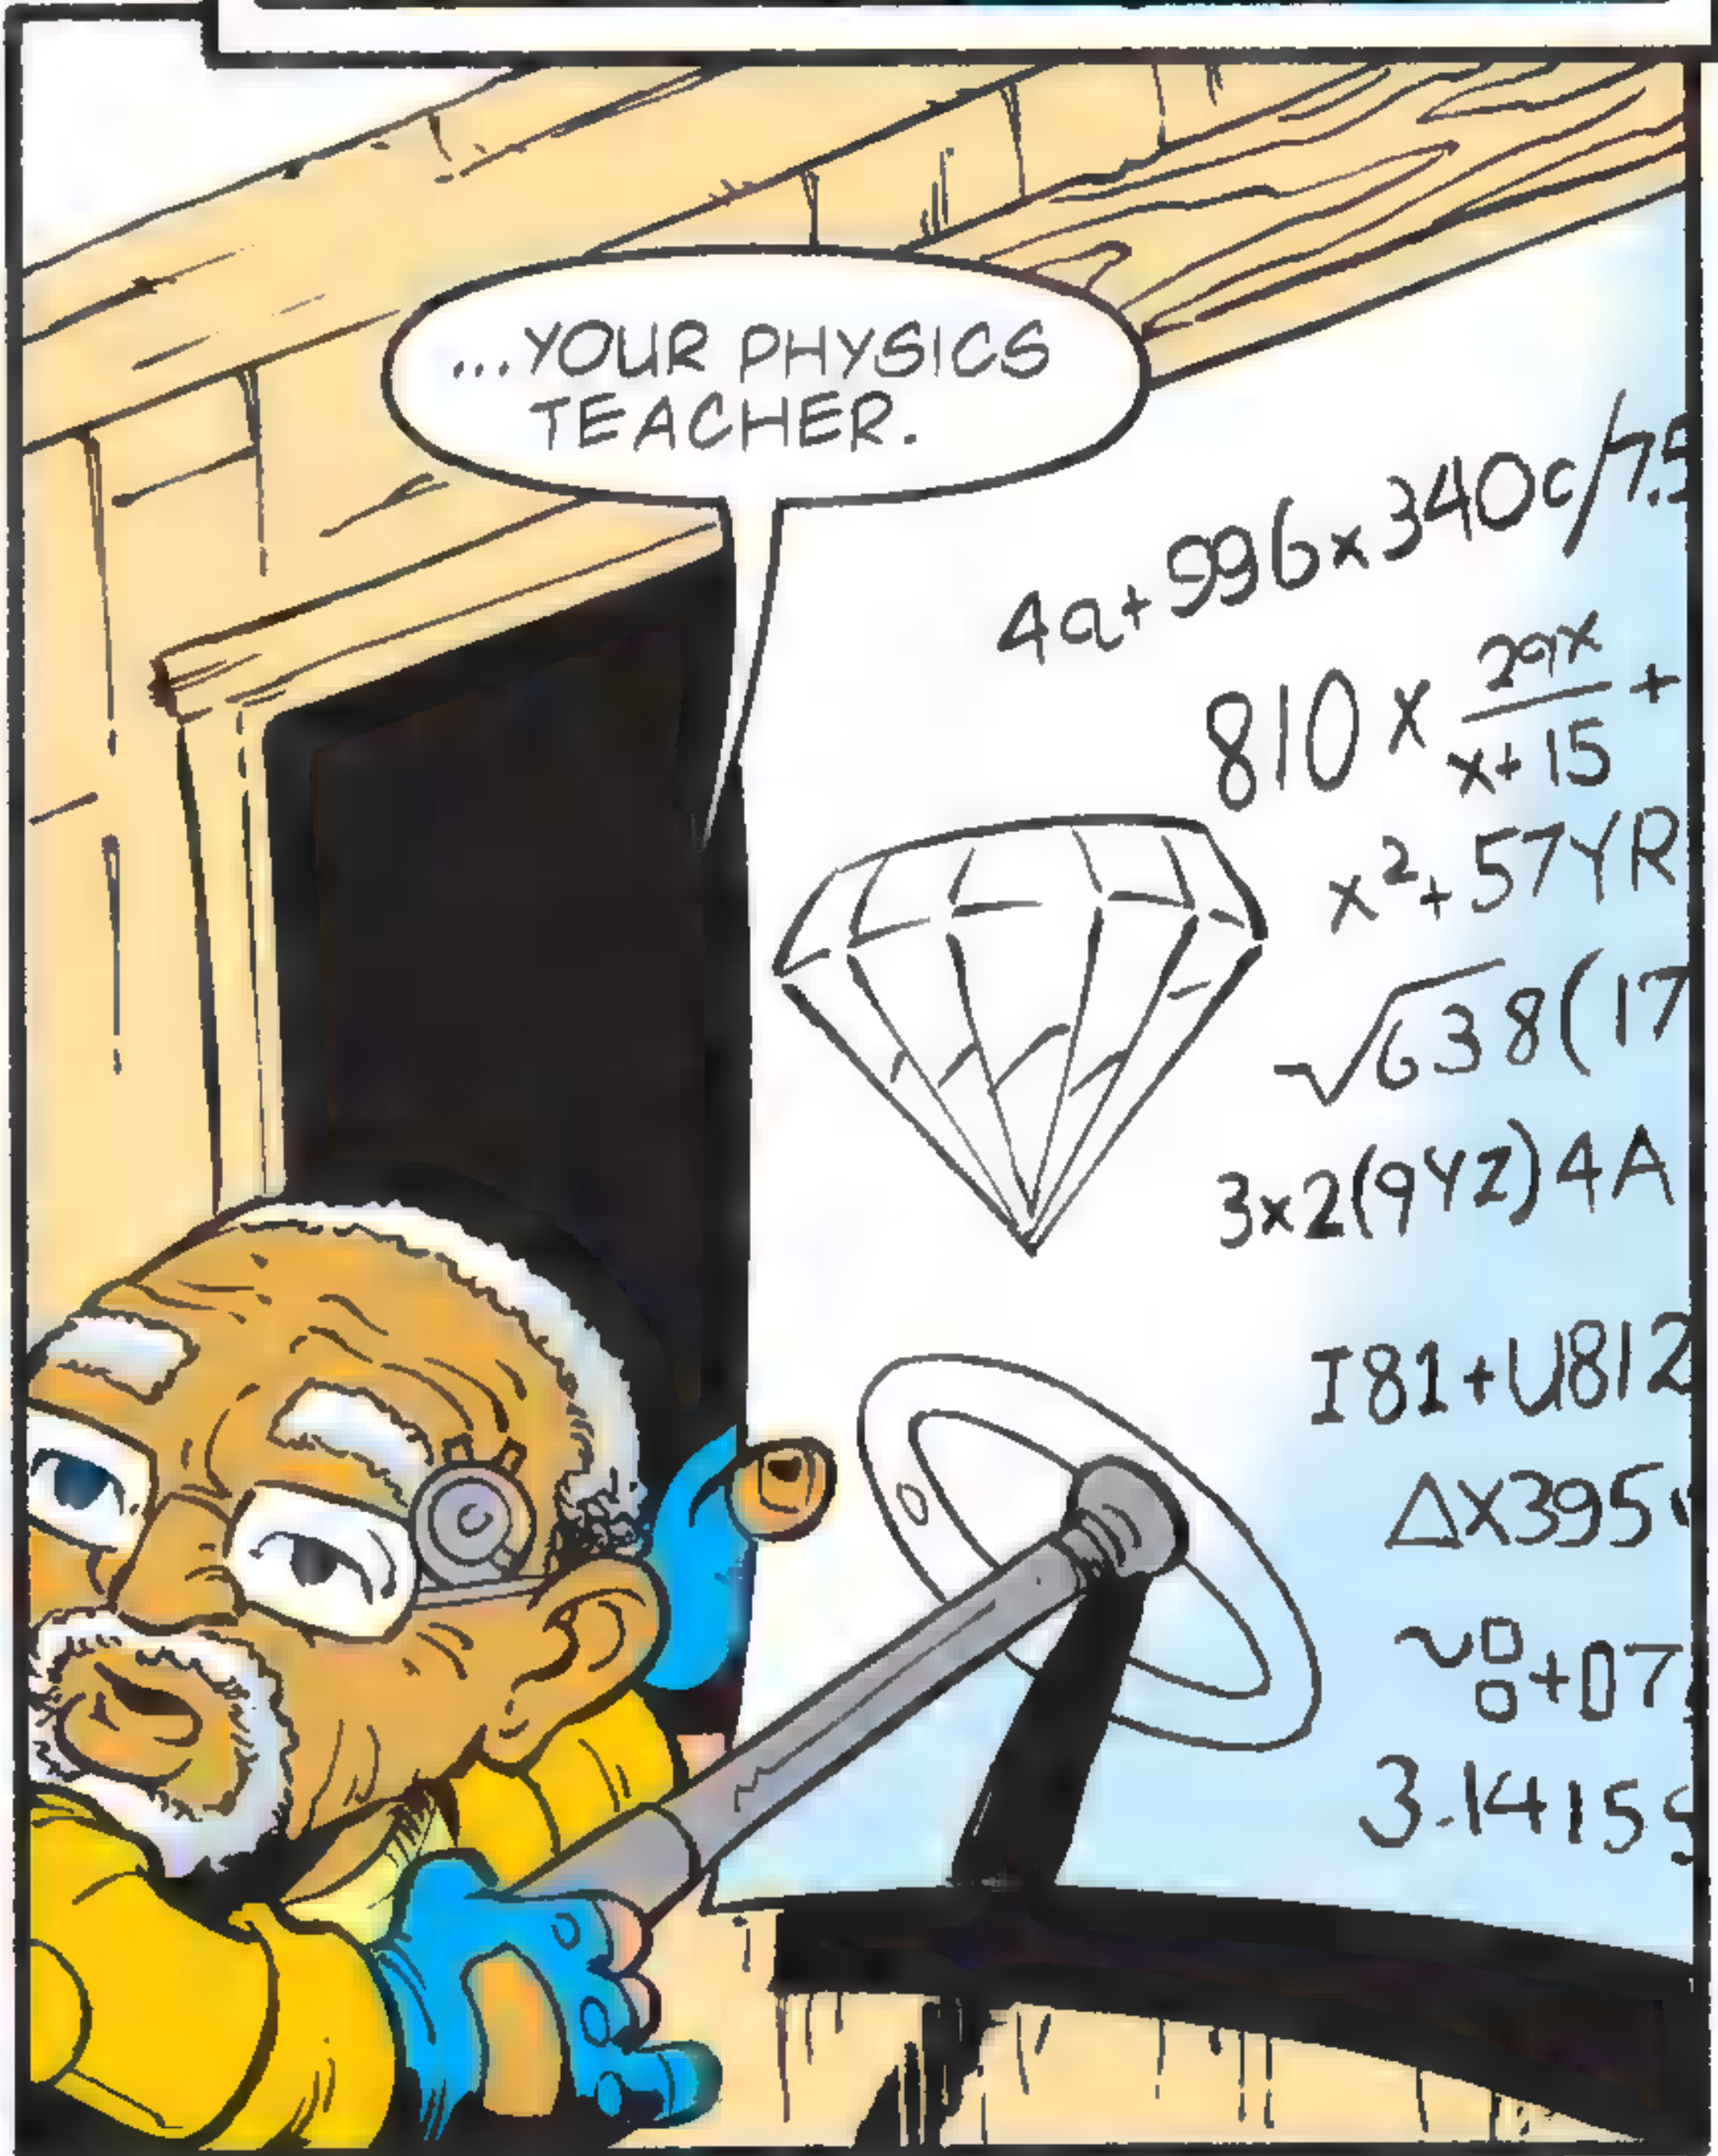 ...YOUR PHYSICS
TEACHER.
4a+996x340c/7.5
810 x 29x/x+15 +
x²+57YR
√638(17
3x2(9YZ)4A
I81+U812
ΔX395
+07
3.1415